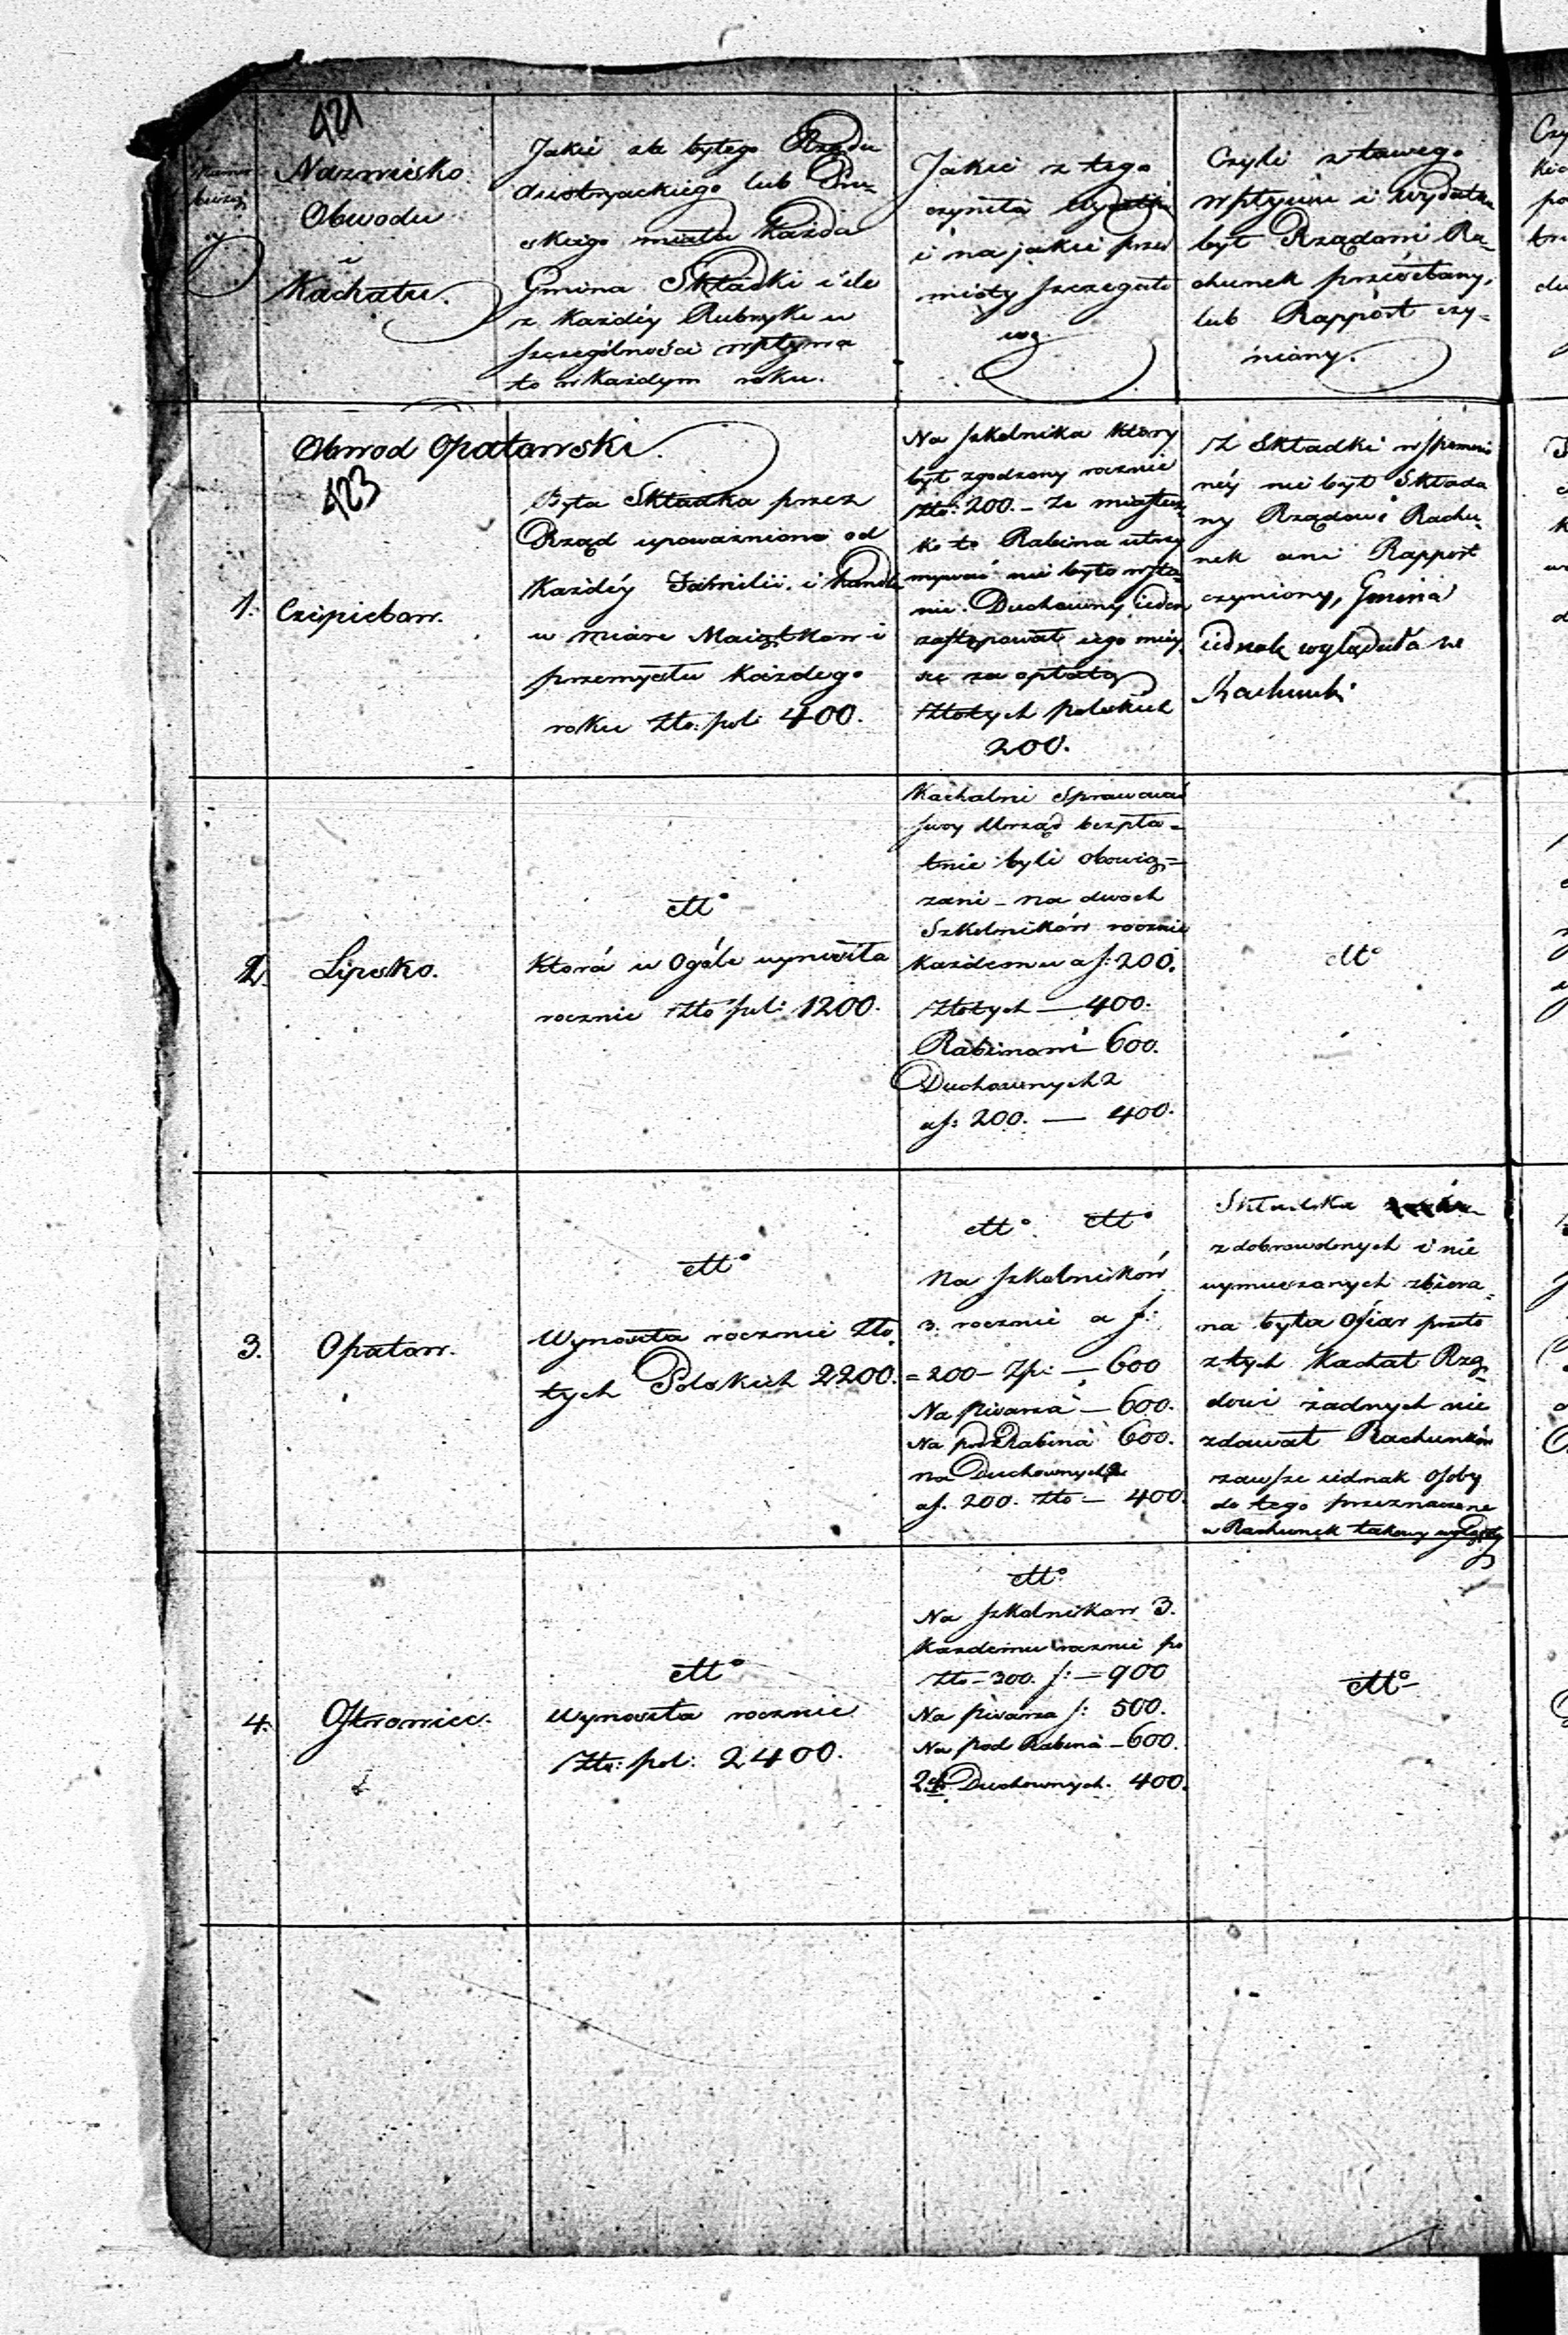 421
Numer
bieżą
cy
Nazwisko
Obwodu
i
Kachału.
Jakie za byłego Rządu
Austryackiego lub Pru-
skiego miała Każda
Gmina Składki i ile
z Każdéy Rubryki w
szczególności wpływa
to w Każdym roku.
Jakie z tego
czyniła Wydatki
i na jakie przed
mioty szczegóło
we
Czyli z tawego
wpływu i Wydatku
był Rządowi Ra-
chunek przesełany,
lub Rapport czy-
niony.
Obwod Opatowski.
423
1.
Czepielow.
Była Składka przez
Rząd upoważniona od
Każdéy Familii i Handlu
w miarę Maiątkow i
przemysłu Każdego
roku Zło: pol: 400.
Na szkolnika który
był zgodzony rocznie
Zło: 200. – Ze miastecz-
ko to Rabina utrzy
mywać nie było w sta-
nie. Duchowny ieden
zastępował iego miey
sce za opłatą
Złotych polskich
200.
Z Składki wspomnio
néy nie był Składa
ny Rządowi Rachu-
nek ani Rapport
czyniony, Gmina
iednak wglądała w
Rachunki
2.
Lipsko.
dtto
Która w Ogóle wynosiła
rocznie Zło pol: 1200.
Kachalni Sprawować
swoy Urząd bezpła=
tnie byli obowią=
zani – na dwoch
Szkolników rocznie
Każdemu a f: 200.
Złotych — 400.
Rabinowi – 600.
Duchownych 2
a f: 200. — 400.
dtto
3.
Opatow.
dtto
Wynosiła rocznie Zło
tych Polskich 2200.
dtto dtto
Na szkolników
3. rocznie a f:
= 200 – Zp: — 600
Na pisarza — 600.
Na podRabina 600.
na Duchownych 2
a f. 200. Zło — 400.
Składka
z dobrowolnych i nie
wymuszanych zbiera-
na była Ofiar przeto
z tych Kachał Rzą-
dowi żadnych nie
zdawał Rachunków
zawsze iednak Osoby
do tego przeznaczone
w Rachunek takowy wglądały
4.
Ostrowiec.
dtto
Wynosiła rocznie
Zło: pol: 2400.
dtto
Na szkolnikow 3.
Każdemu rocznie po
Zło – 300. f: — 900
Na pisarza f: 500.
Na pod Rabina – 600.
2ch Duchownych. 400.
dtto